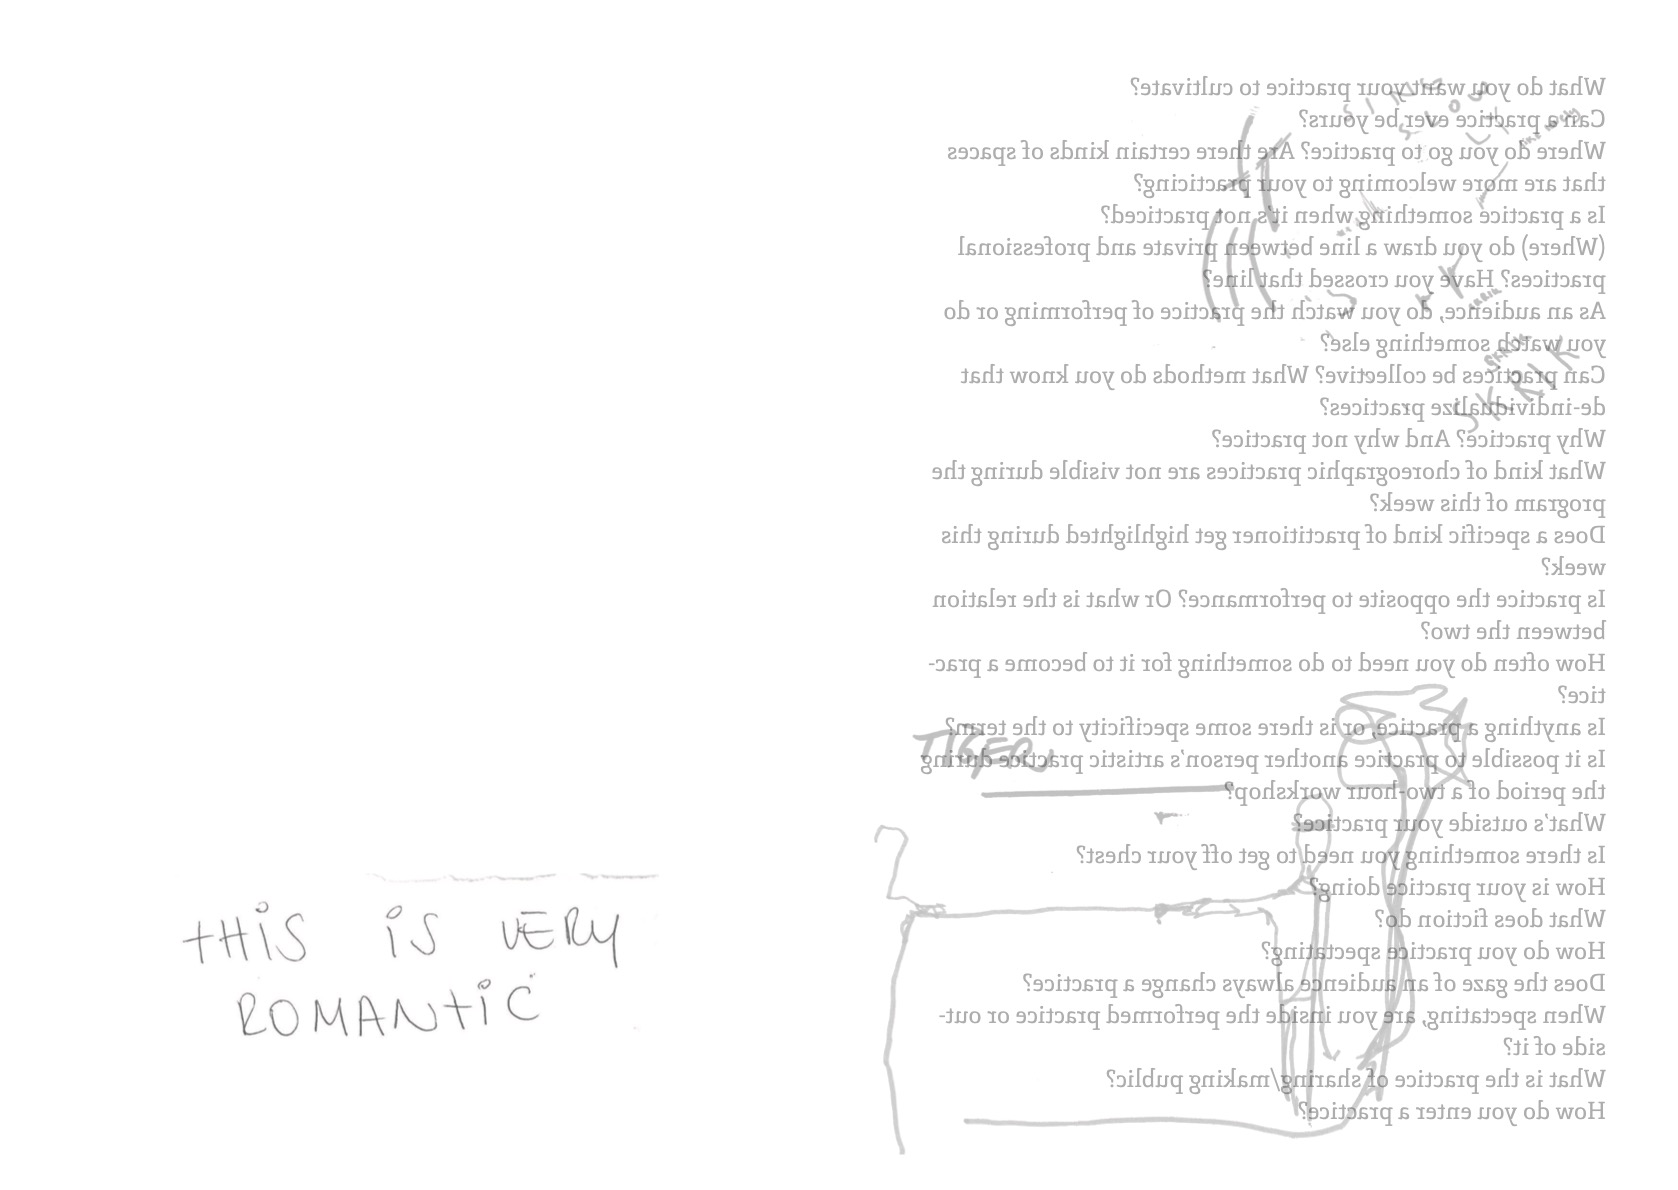 THIS IS VERY
ROMANTIC
What do you want your practice to cultivate?
Can a practice ever be yours?
Where do you go to practice? Are there certain kinds of spaces
that are more welcoming to your practicing?
Is a practice something when it's not practiced?
(Where) do you draw a line between private and professional
practices? Have you crossed that line?
As an audience, do you watch the practice of performing or do
you watch something else?
Can practices be collective? What methods do you know that
de-individualize practices?
Why practice? And why not practice?
What kind of choreographic practices are not visible during the
program of this week?
Does a specific kind of practitioner get highlighted during this
week?
Is practice the opposite to performance? Or what is the relation
between the two?
How often do you need to do something for it to become a prac-
tice?
Is anything a practice, or is there some specificity to the term?
Is it possible to practice another person's artistic practice during
the period of a two-hour workshop?
What's outside your practice?
Is there something you need to get off your chest?
How is your practice doing?
What does fiction do?
How do you practice spectating?
Does the gaze of an audience always change a practice?
When spectating, are you inside the performed practice or out-
side of it?
What is the practice of sharing/making public?
How do you enter a practice?
SKRIK
TIGER